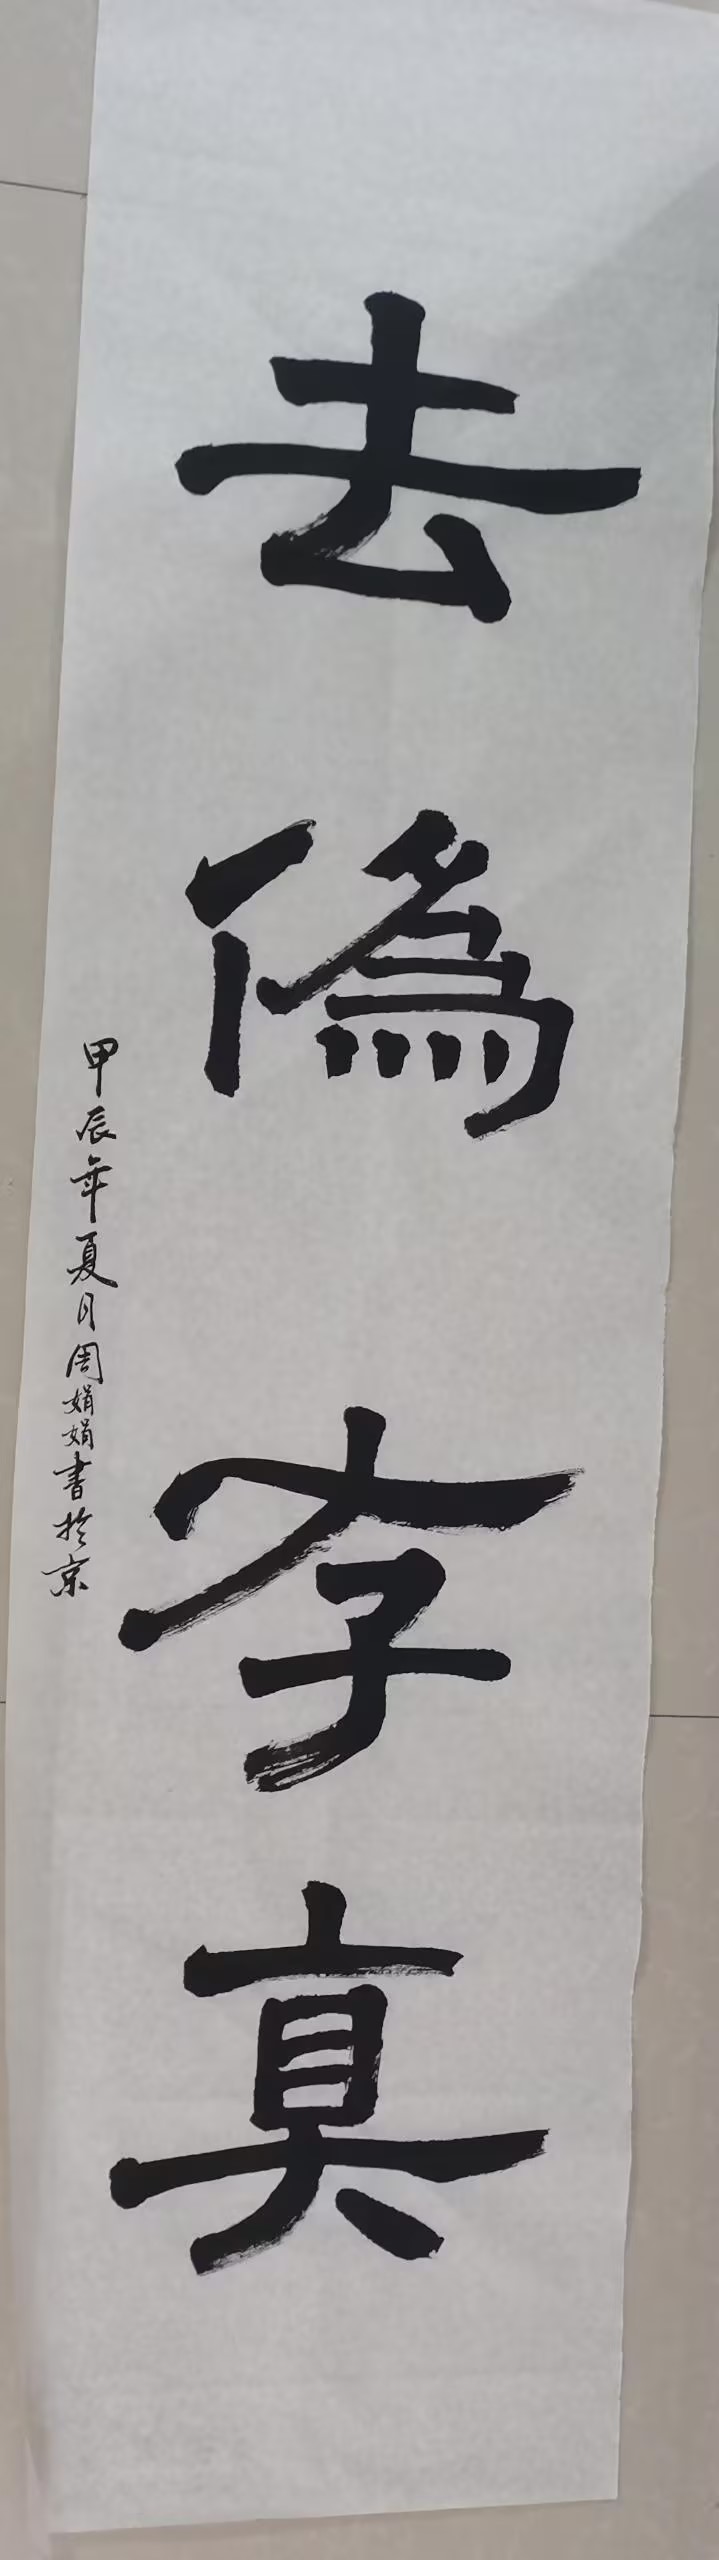 去偽存真
甲辰年夏月周娟娟書於京